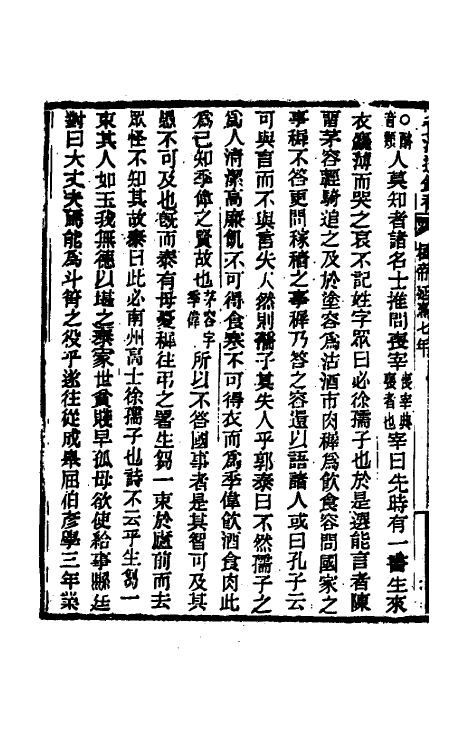 桓帝延熹七年
○酹音類人莫知者諸名士推問喪宰喪宰典喪者也宰曰先時有一書生來
衣麤薄而哭之哀不記姓字眾曰必徐孺子也於是選能言者陳
留茅容輕騎追之及於塗容為沽酒市肉穉為飲食容問國家之
事穉不答更問稼穡之事穉乃答之容還以語諸人或曰孔子云
可與言而不與言失人然則孺子其失人乎郭泰曰不然孺子之
為人清潔高廉飢不可得食寒不可得衣而為季偉飲酒食肉此
為已知季偉之賢故也茅容字季偉所以不答國事者是其智可及其
愚不可及也既而泰有母憂穉往弔之置生芻一束於廬前而去
眾怪不知其故泰曰此必南州高士徐孺子也詩不云乎生芻一
束其人如玉我無德以堪之泰家世貧賤早孤母欲使給事縣廷
對曰大丈夫焉能為斗筲之役乎遂往從成皋屈伯彥學三年業